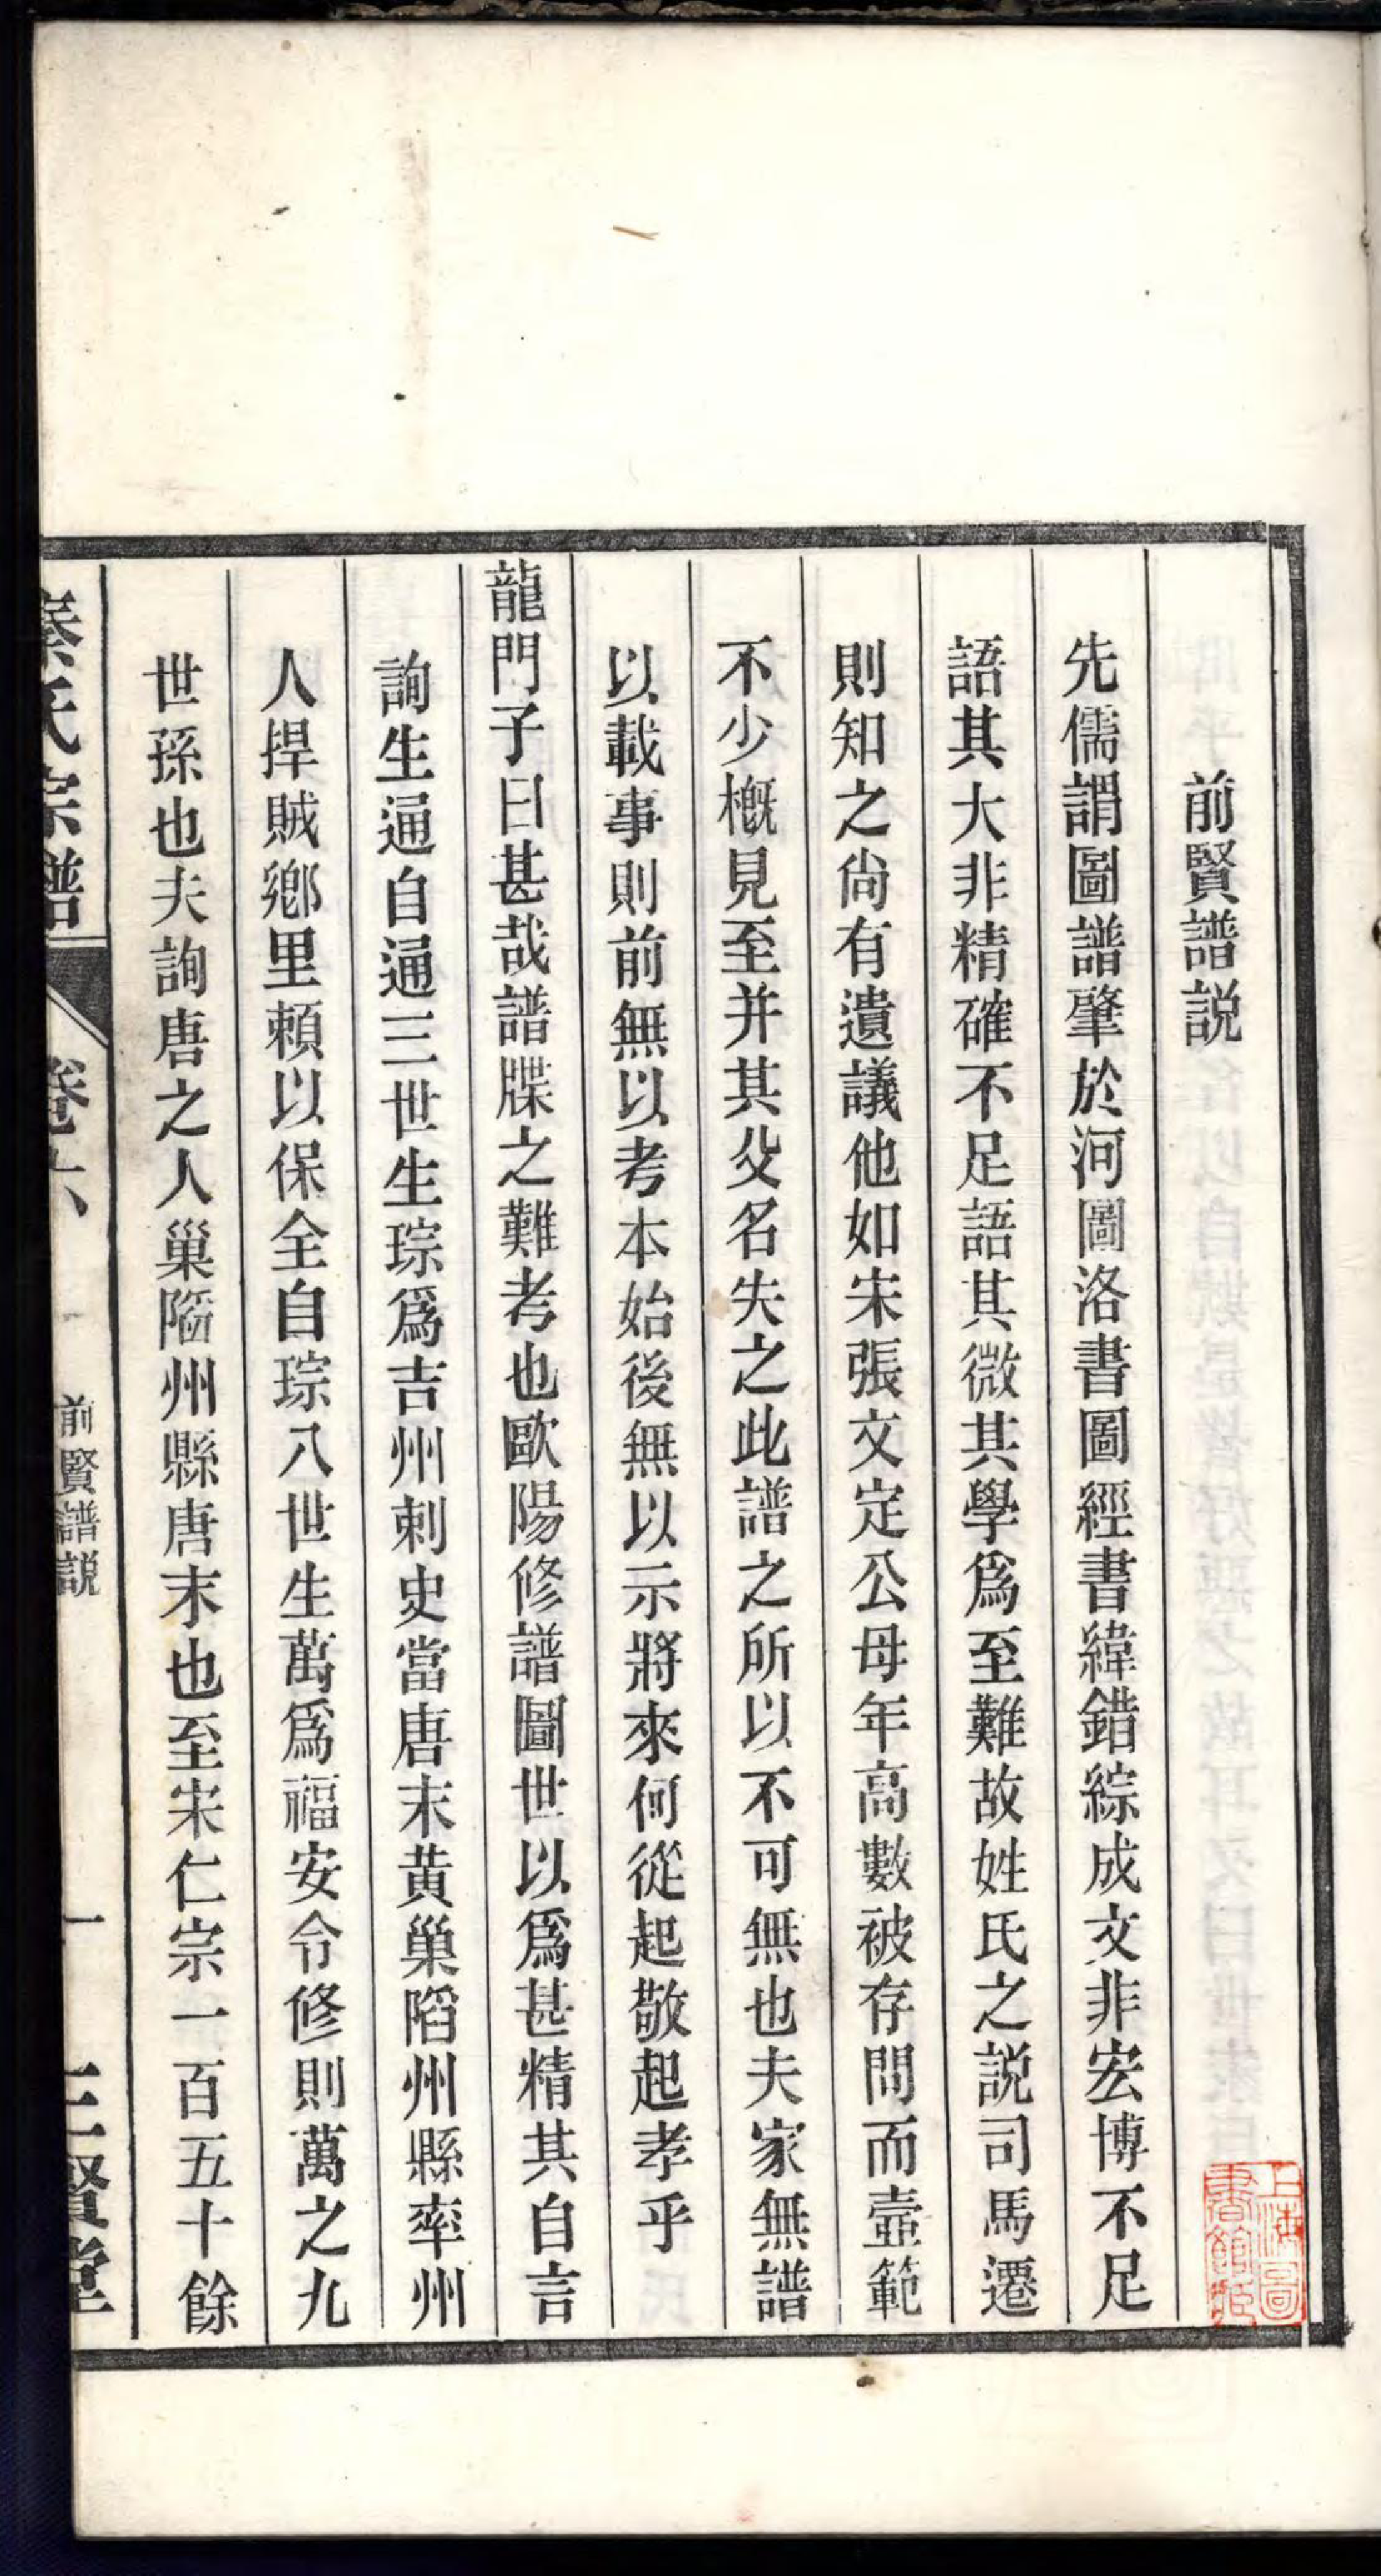 前賢譜説
先儒謂圖譜肇於河圖洛書圖經書緯錯綜成文非宏博不足
語其大非精確不足語其微其學爲至難故姓氏之説司馬遷
則知之尙有遺議他如宋張文定公母年高數被存問而壼範
不少槪見至并其父名失之此譜之所以不可無也夫家無譜
以載事則前無以考本始後無以示將來何從起敬起孝乎
龍門子曰甚哉譜牒之難考也歐陽修譜圖世以爲甚精其自言
詢生通自通三世生琮爲吉州刺史當唐末黄巢陷州縣率州
人捍賊鄉里賴以保全自琮八世生萬爲福安令修則萬之九
世孫也夫詢唐之人巢陷州縣唐末也至宋仁宗一百五十餘
秦氏宗譜 卷六 前賢譜説 一 三賢堂
上海圖書館藏